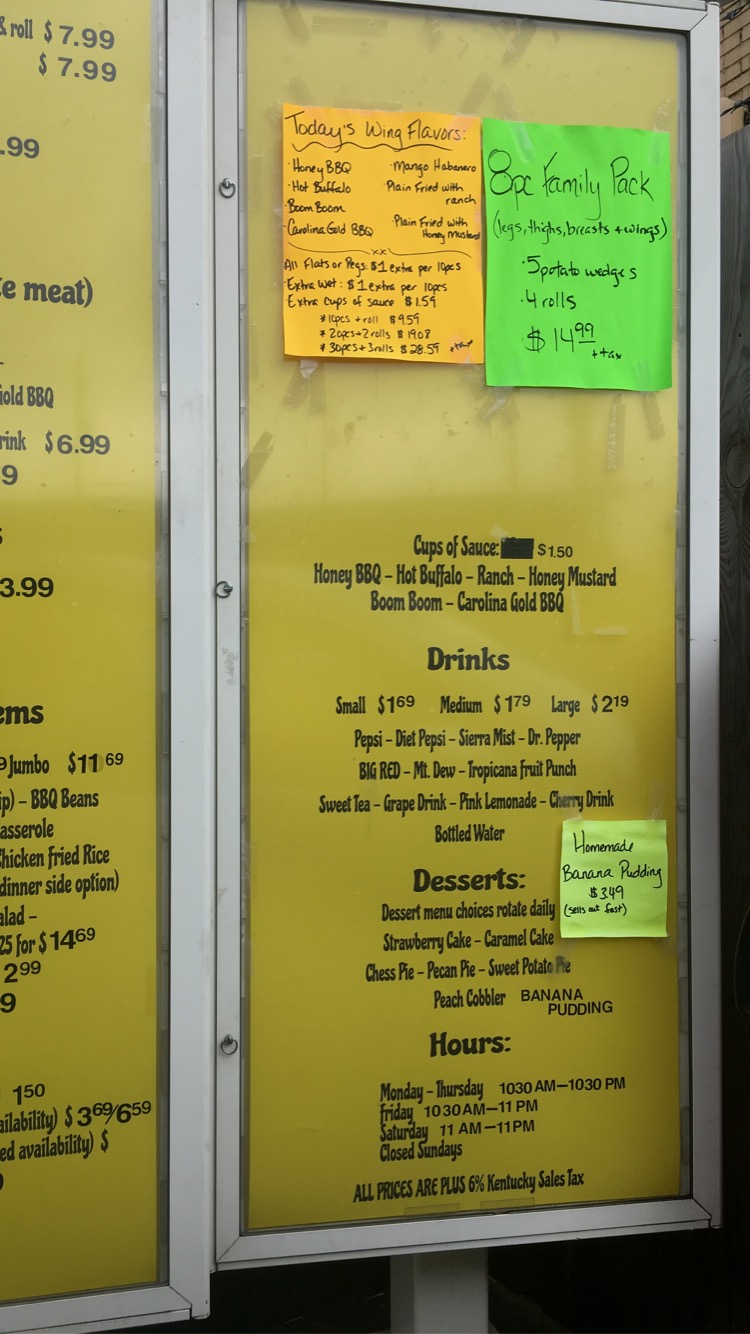 & roll $7.99
$7.99
.99
meat)
BBQ
$6.99
9
3.99
Jumbo $11 69
– BBQ Beans
Chicken Fried Rice
(dinner side option)
25 for $14 69
2 99
9
1 50
$3 69/6 59
availability) $
Today's Wing Flavors:
·Honey BBQ ·Mango Habanero
·Hot Buffalo ·Plain Fried with
ranch
·Boom Boom
·Carolina Gold BBQ ·Plain Fried with
Honey Mustard
xx
All Flats or Pegs: $1 extra per 10pcs
·Extra Wet: $1 extra per 10pcs
·Extra Cups of sauce $1.59
* 10pcs + roll $9.59
* 20pcs + 2 rolls $19.08
* 30pcs + 3 rolls $28.59 + tax
8pc Family Pack
(legs, thighs, breasts + wings)
·5 potato wedges
·4 rolls
$14 99
+ tax
Cups of Sauce: $1.50
Honey BBQ – Hot Buffalo – Ranch – Honey Mustard
Boom Boom – Carolina Gold BBQ
Drinks
Small $1 69 Medium $1 79 Large $2 19
Pepsi – Diet Pepsi – Sierra Mist – Dr. Pepper
BIG RED – Mt. Dew – Tropicana Fruit Punch
Sweet Tea – Grape Drink – Pink Lemonade – Cherry Drink
Bottled Water
Homemade
Banana Pudding
$3.49
(sells out fast)
Desserts:
Dessert menu choices rotate daily
Strawberry Cake – Caramel Cake
Chess Pie – Pecan Pie – Sweet Potato Pie
Peach Cobbler BANANA
PUDDING
Hours:
Monday – Thursday 1030 AM–1030 PM
Friday 1030 AM–11 PM
Saturday 11 AM–11PM
Closed Sundays
ALL PRICES ARE PLUS 6% Kentucky Sales Tax